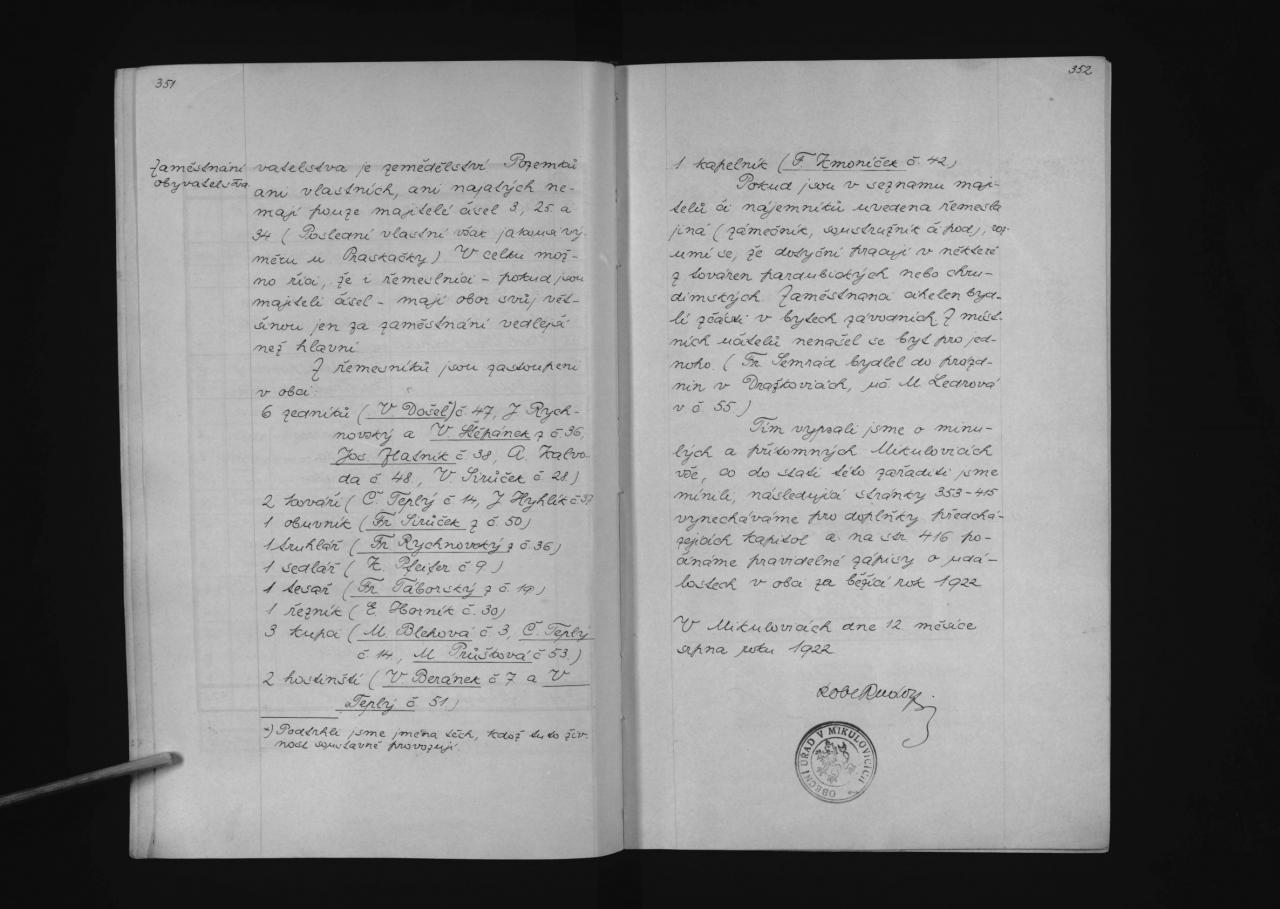 351
Zaměstnání
obyvatelstva
vatelstva je zemědělství Pozemků
ani vlastních, ani najatých ne-
mají pouze majitelé čísel 3, 25 a
34 (Poslední vlastní však jakousi vý-
měru u Praskačky) V celku mož-
no říci, že i řemeslníci - pokud jsou
majiteli čísel - mají obor svůj vět-
šinou jen za zaměstnání vedlejší
než hlavní
Z řemesníků jsou zastoupeni
v obci:
6 zedníků (V. Došel*) č. 47, J Rych-
novský a V. Štěpánek z č. 36,
Jos. Hatník č. 38, A. Kalvo-
da č 48, V. Sirůček č. 28)
2 kováři (Č. Teplý č 14, J Hyhlík č 37
1 obuvník (Fr Sirůček z č. 50)
1 truhlář (Fr Rychnovský z č. 36)
1 sedlář (K. Pfeifer č 9.)
1 tesař (Fr. Táborský z č. 19)
1 řezník (E. Horník č. 30)
3 kupci (M. Blehová č 3, Č. Teplý
č 14, M Průšková č 53.)
2 hostinští (V Beránek č 7 a V
Teplý č 51)
*) Podtrhli jsme jména těch, kdož tuto živ-
nost soustavně provozují.
352
1 kapelník (F. Zmoníček č. 42)
Pokud jsou v seznamu maji-
telů či nájemníků uvedena řemesla
jiná (zámečník, soustružník a pod), roz-
umí se, že dotyční pracují v některé
z továren pardubických nebo chru-
dimských Zaměstnanci cihelen byd-
lí zčásti v bytech závodních Z míst-
ních učitelů nenašel se byt pro jed-
noho. (Fr. Semrád bydlel do prázd-
nin v Dražkovicích, uč. M. Ledrová
v č 55)
Tím vypsali jsme o minu-
lých a přítomných Mikulovicích
vše, co do stati této zařaditi jsme
mínili, následující stránky 353-415
vynecháváme pro doplňky předchá-
zejících kapitol a na str 416 po-
čínáme pravidelné zápisy o udá-
lostech v obci za běžící rok 1922
V Mikulovicích dne 12. měsíce
srpna roku 1922
OBECNÍ ÚŘAD V MIKULOVICÍCH